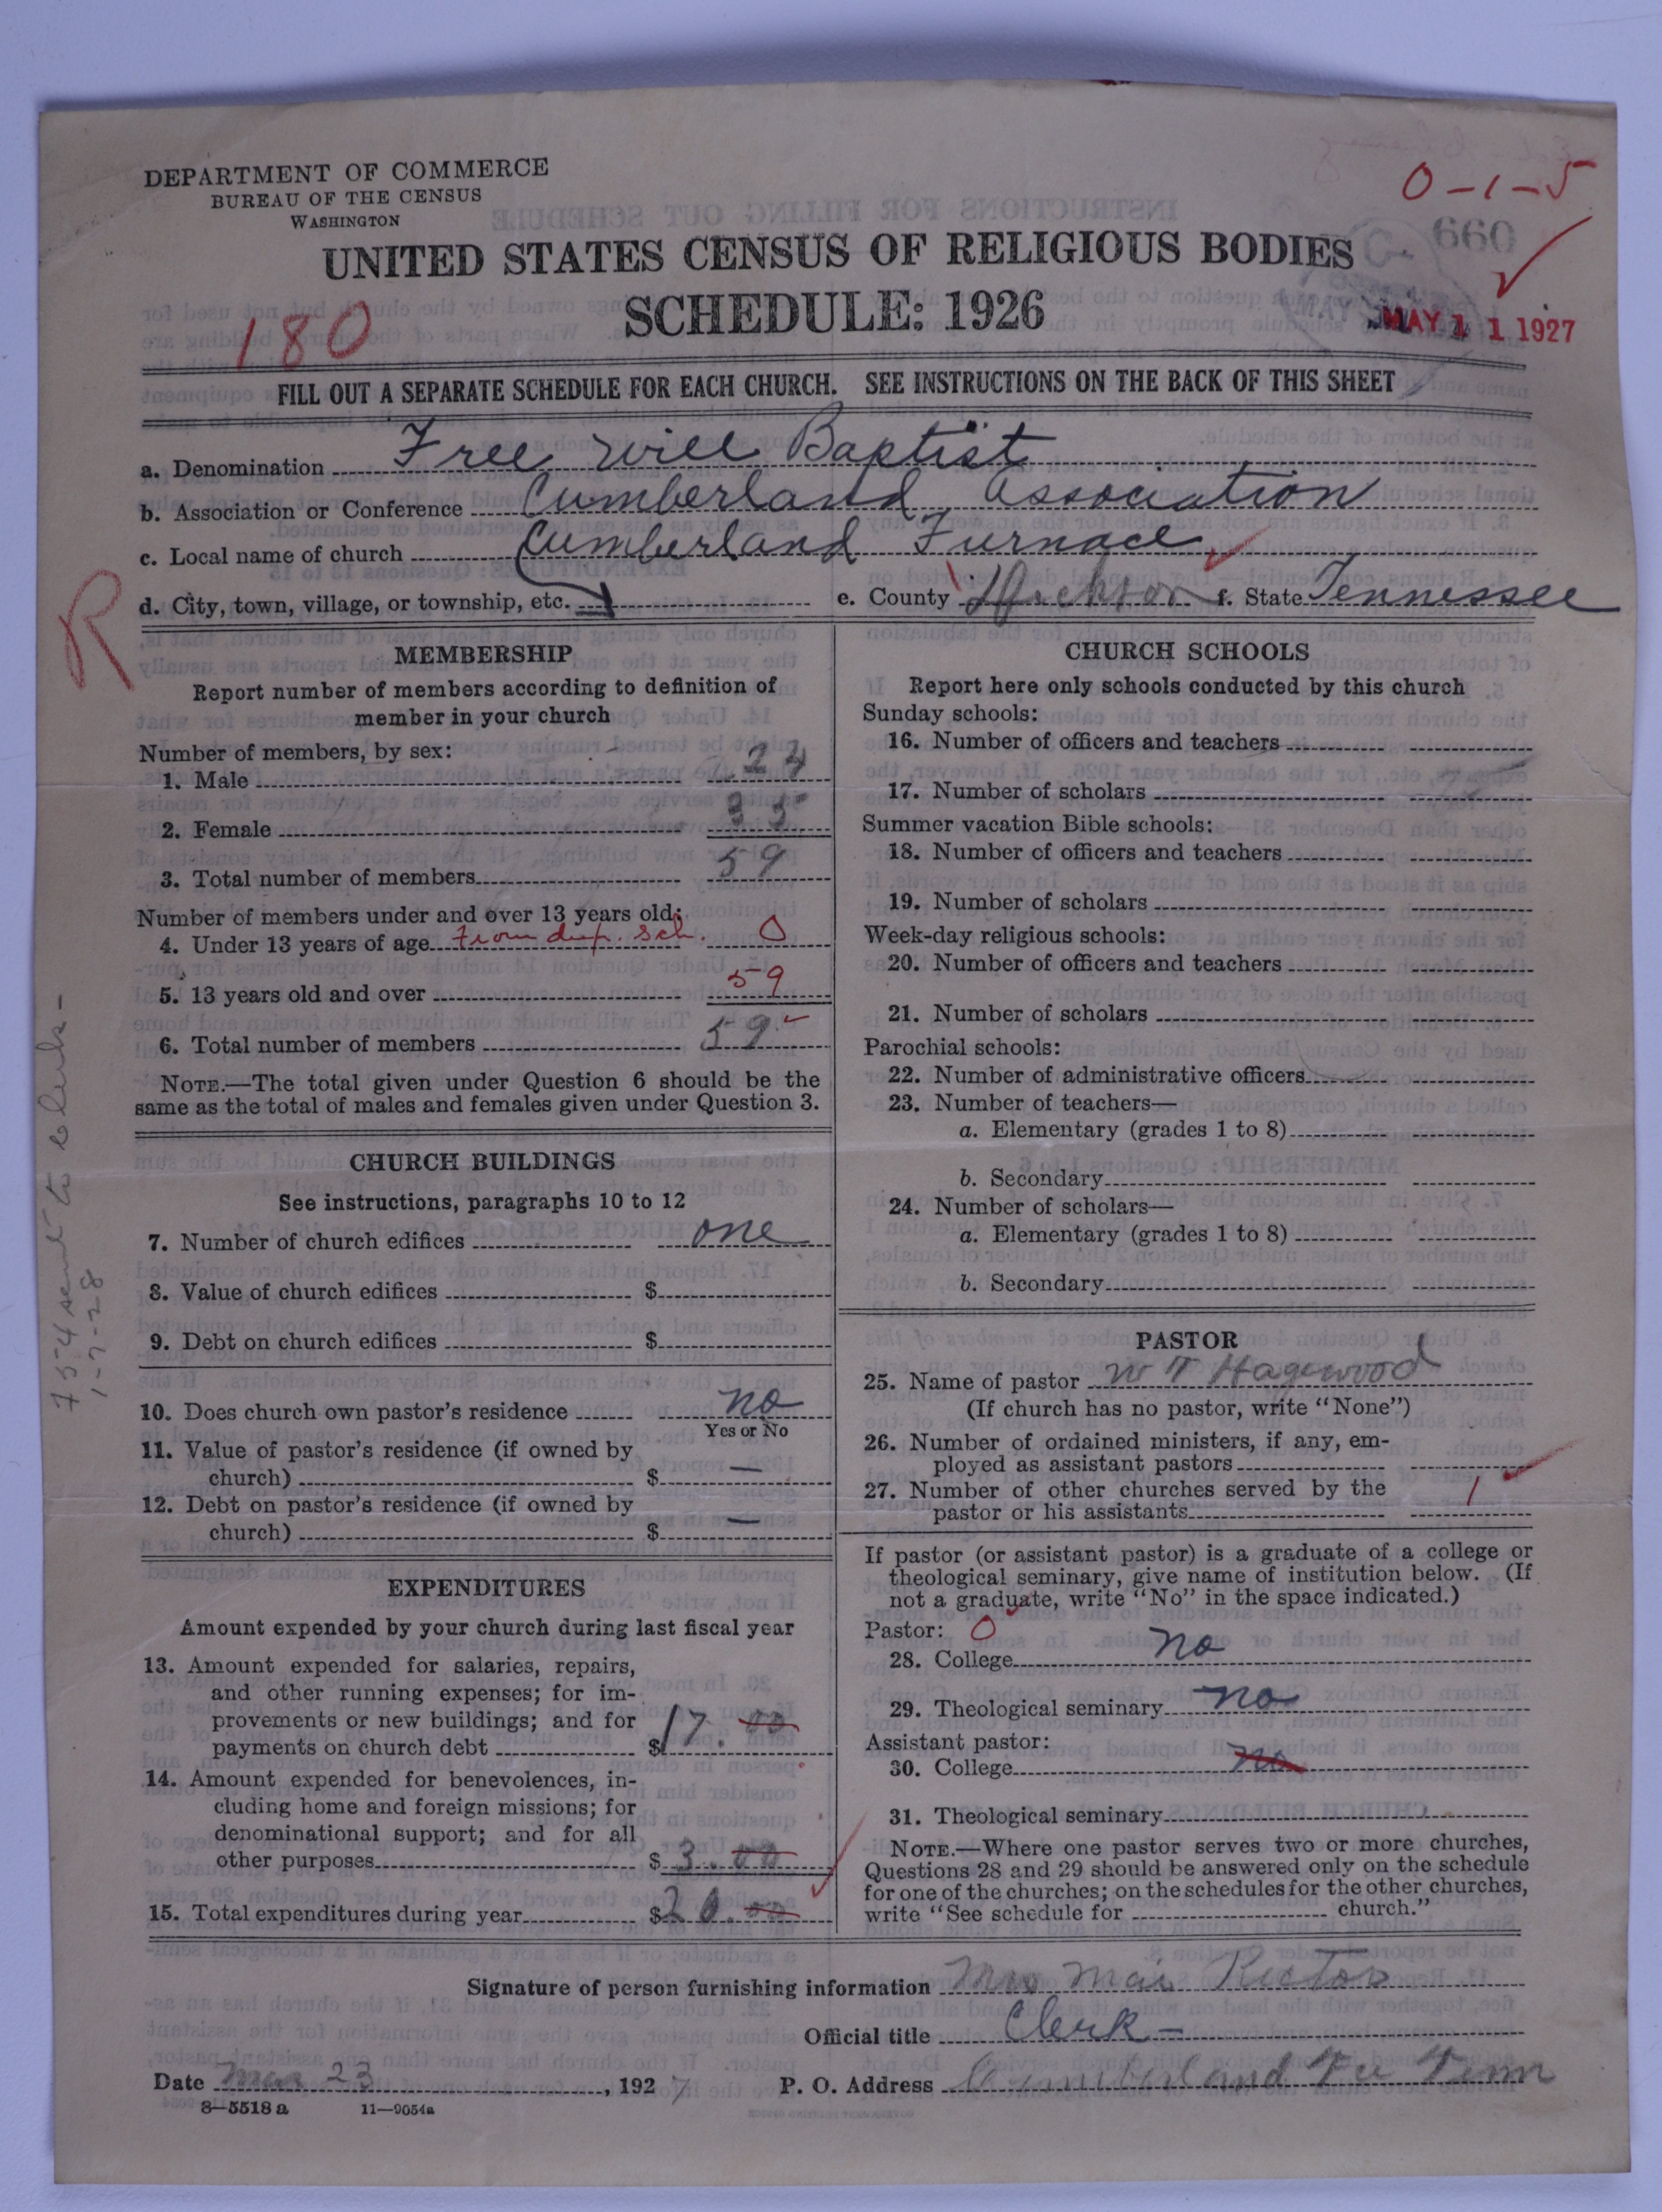 DEPARTMENT OF COMMERCE
BUREAU OF THE CENSUS
WASHINGTON
0-1-5
660
UNITED STATES CENSUS OF RELIGIOUS BODIES
SCHEDULE: 1926
180
MAY 11 1927
FILL OUT A SEPARATE SCHEDULE FOR EACH CHURCH. SEE INSTRUCTIONS ON THE BACK OF THIS SHEET
a. Denomination Free Will Baptist
b. Association or Conference Cumberland Association
c. Local name of church Cumberland Furnace
d. City, town, village, or township, etc. e. County Dickson f. State Tennessee
R
MEMBERSHIP
Report number of members according to definition of
member in your church
Number of members, by sex:
1. Male 24
2. Female 35
3. Total number of members 59
Number of members under and over 13 years old:
4. Under 13 years of age From dup. Sch. 0
5. 13 years old and over 59
6. Total number of members 59
NOTE.—The total given under Question 6 should be the
same as the total of males and females given under Question 3.
CHURCH BUILDINGS
See instructions, paragraphs 10 to 12
7. Number of church edifices one
8. Value of church edifices $
9. Debt on church edifices $
10. Does church own pastor's residence no
Yes or No
11. Value of pastor's residence (if owned by
church) $ —
12. Debt on pastor's residence (if owned by
church) $ —
EXPENDITURES
Amount expended by your church during last fiscal year
13. Amount expended for salaries, repairs,
and other running expenses; for im-
provements or new buildings; and for
payments on church debt $17.00
14. Amount expended for benevolences, in-
cluding home and foreign missions; for
denominational support; and for all
other purposes $3.00
15. Total expenditures during year $20.00
CHURCH SCHOOLS
Report here only schools conducted by this church
Sunday schools:
16. Number of officers and teachers
17. Number of scholars
Summer vacation Bible schools:
18. Number of officers and teachers
19. Number of scholars
Week-day religious schools:
20. Number of officers and teachers
21. Number of scholars
Parochial schools:
22. Number of administrative officers
23. Number of teachers—
a. Elementary (grades 1 to 8)
b. Secondary
24. Number of scholars—
a. Elementary (grades 1 to 8)
b. Secondary
PASTOR
25. Name of pastor W T Hagewood
(If church has no pastor, write "None")
26. Number of ordained ministers, if any, em-
ployed as assistant pastors
27. Number of other churches served by the
pastor or his assistants 1
If pastor (or assistant pastor) is a graduate of a college or
theological seminary, give name of institution below. (If
not a graduate, write "No" in the space indicated.)
Pastor: 0
28. College no
29. Theological seminary no
Assistant pastor:
30. College no
31. Theological seminary
NOTE.—Where one pastor serves two or more churches,
Questions 28 and 29 should be answered only on the schedule
for one of the churches; on the schedules for the other churches,
write "See schedule for church."
Signature of person furnishing information Mrs Mai Rector
Official title Clerk—
Date Mar 23, 1927 P. O. Address Cumberland Fu Tenn
8—5518a 11—9054a
754 sent to Clerk-
1-7-28